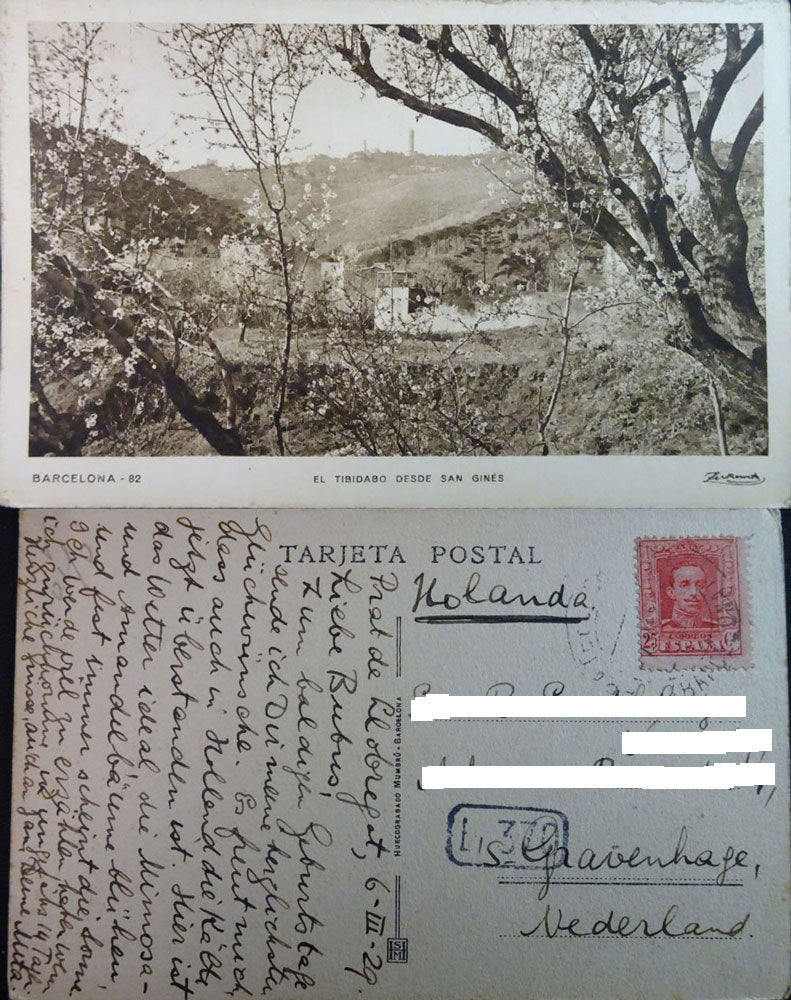 BARCELONA - 82
EL TIBIDABO DESDE SAN GINÉS
TARJETA POSTAL
Holanda
25 CS
CORREOS
ESPAÑA
HUECOGRABADO MUMBRÚ - BARCELONA
's Gravenhage,
Nederland.
Prat de Llobregat, 6-III-29.
Liebe Bubus,
Zum baldigen Geburtstage
sende ich Dir meine herzlichsten
Glückwünsche. Es freut mich,
dass auch in Holland die Kälte
jetzt überstanden ist. Hier ist
das Wetter ideal, die Mimosa-
und Amandelbäume blühen,
und fast immer scheint die Sonne
Ich werde viel zu erzählen haben wenn
ich zurückkomme, in ungefähr 14 Tagen
Herzliche Grüsse, auch an Hans, Deine Muta.